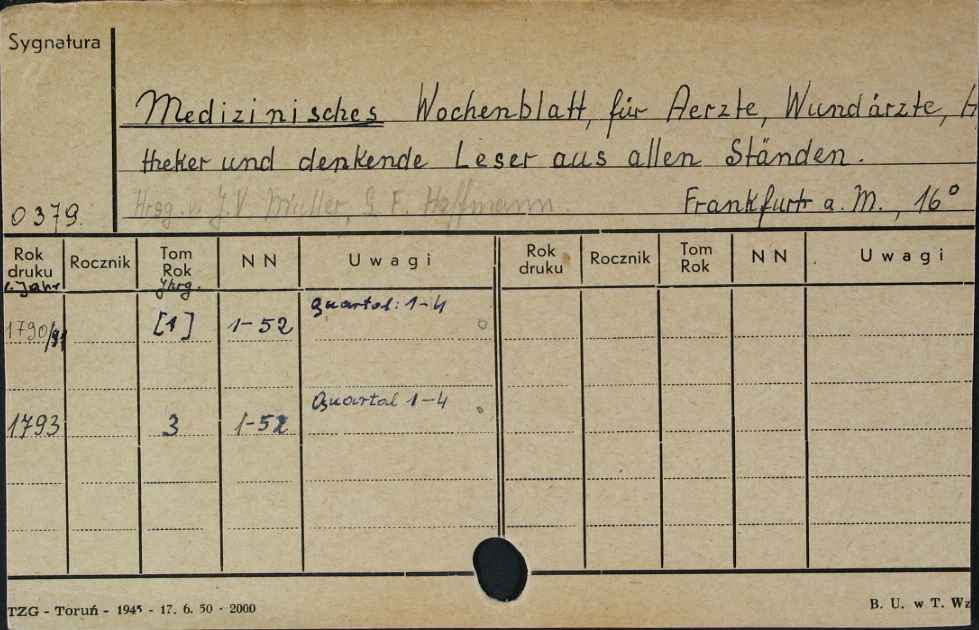 Sygnatura
Medizinisches Wochenblatt, für Aerzte, Wundärzte, A
theker und denkende Leser aus allen Ständen.
0379. Hrsg. v. J.V. Müller, G. F. Hoffmann. Frankfurt a. M., 16°
Rok druku Rocznik Tom Rok NN Uwagi Rok druku Rocznik Tom Rok NN Uwagi
Jahr Jhrg.
1790/91 [1] 1-52 Quartal: 1-4
1793 3 1-52 Quartal 1-4
TZG - Toruń - 1945 - 17. 6. 50 - 2000 B. U. w T. Wz